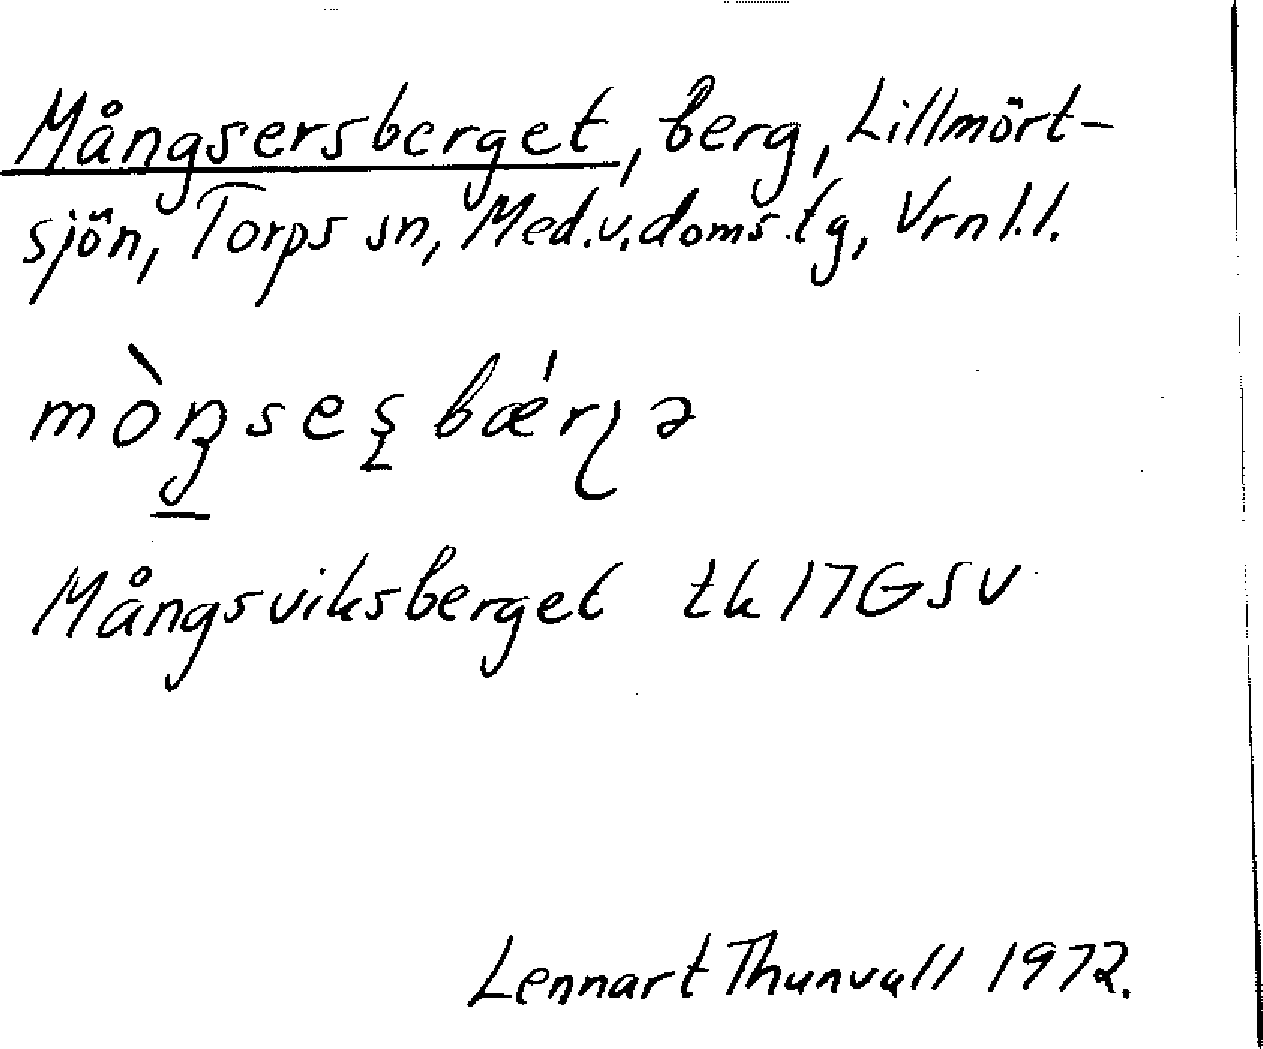 Mångsersberget, berg, Lillmört-
sjön, Torps sn, Med.v.doms.tg, Vrnl.l.
mòŋseʂbǽrɩə
Mångsviksberget tk 17GSV
Lennart Thunvall 1972.